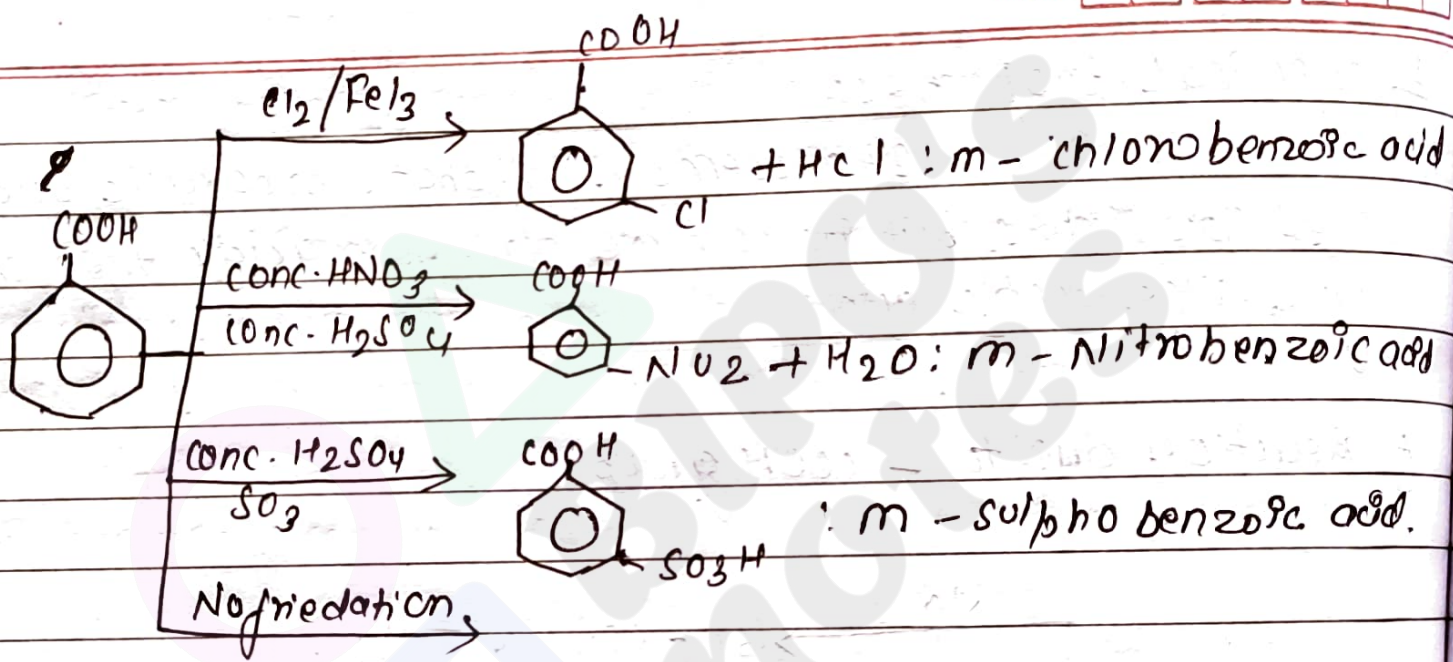 COOH
Cl2/FeCl3
+ HCl : m - chlorobenzoic acid
Cl
COOH
conc. HNO3
conc. H2SO4
COOH
- NO2 + H2O : m - Nitrobenzoic acid
conc. H2SO4
SO3
COOH
SO3H
: m - sulpho benzoic acid.
BIPO'S
notes